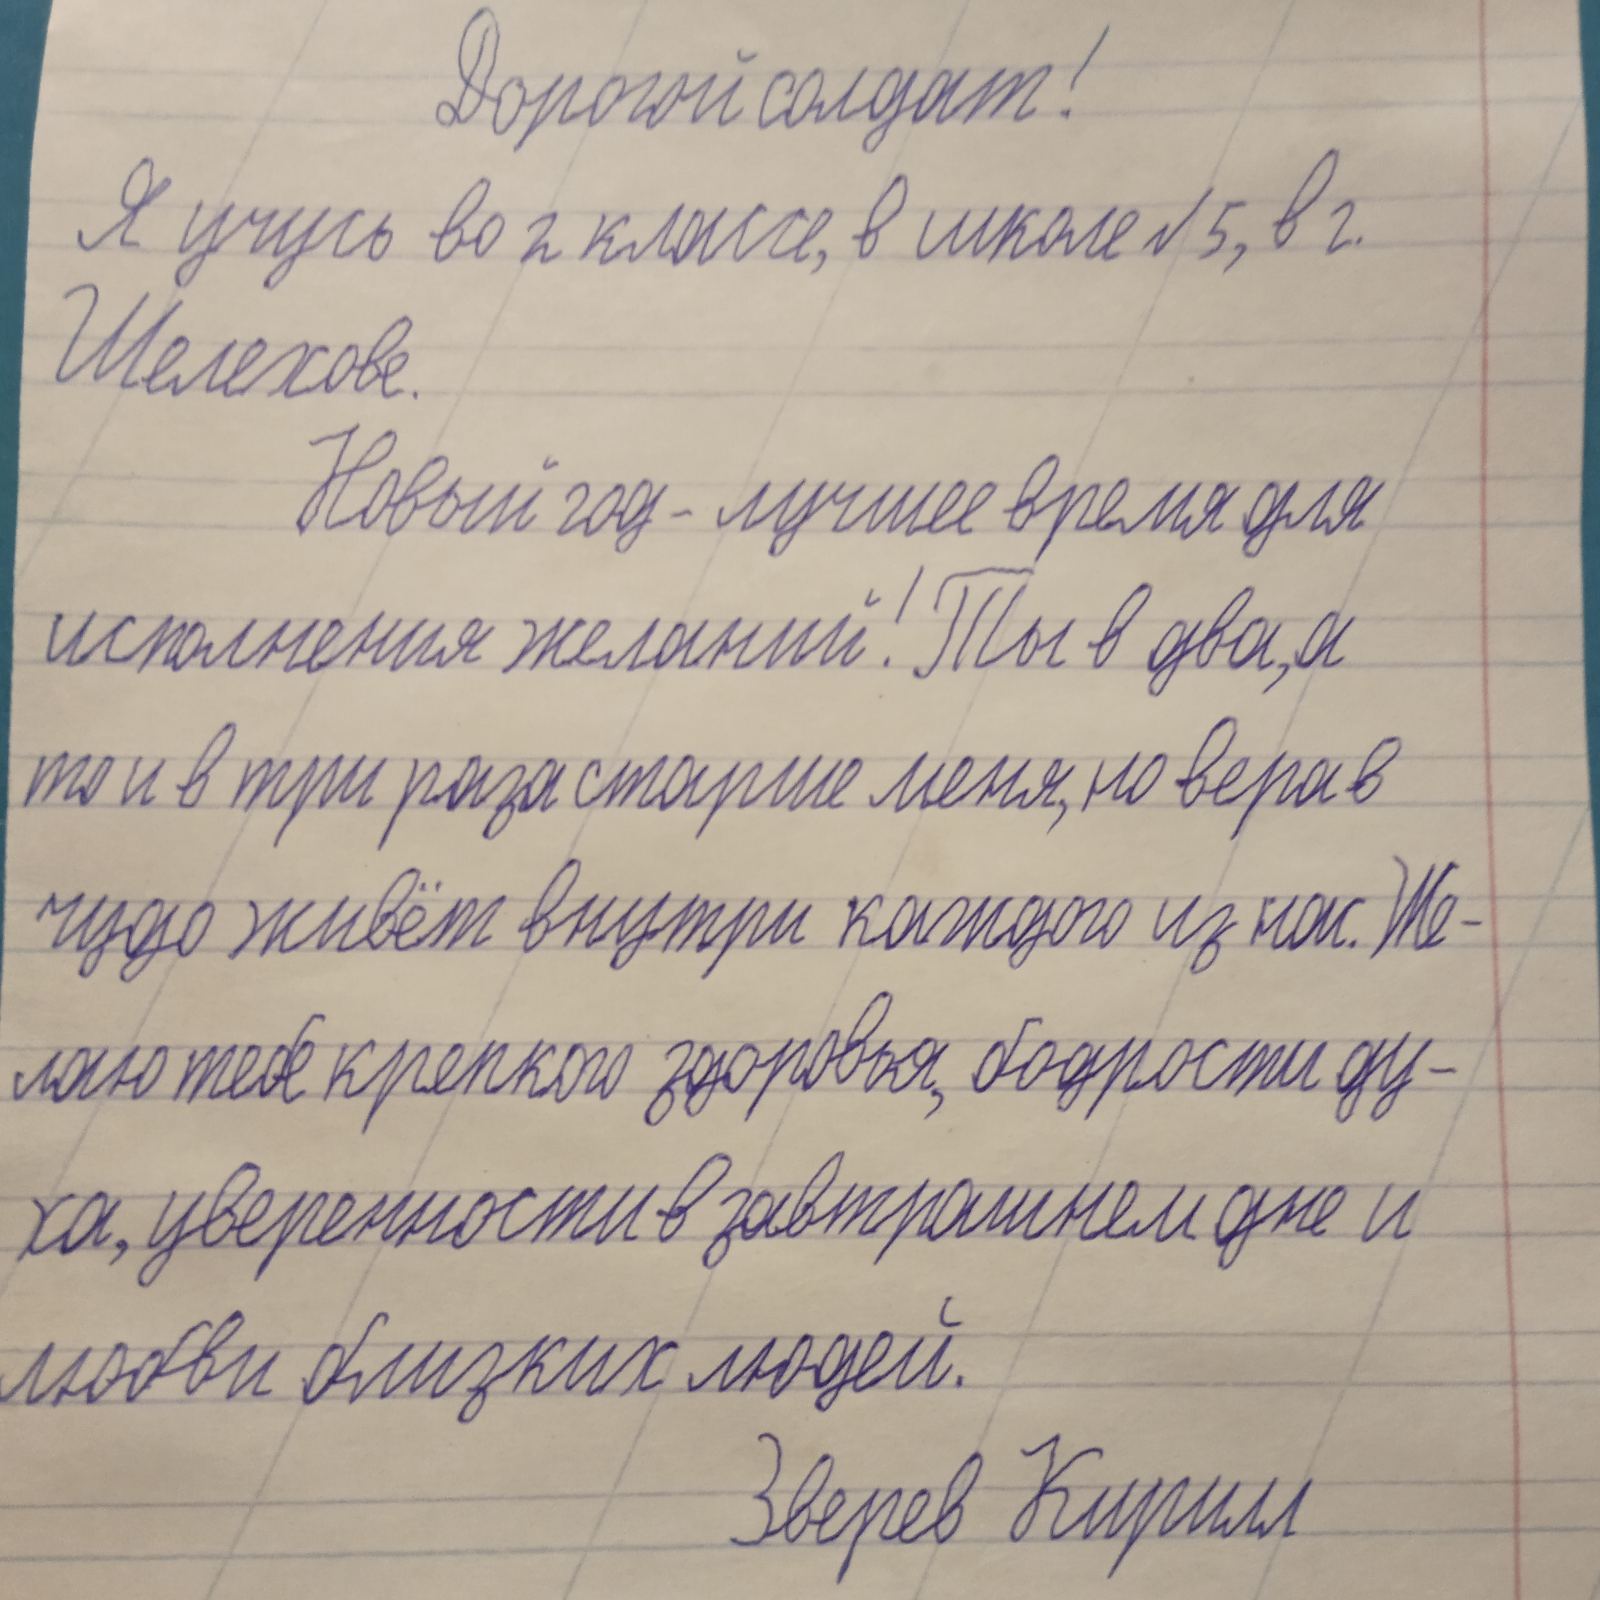 Дорогой солдат!
Я учусь во 2 классе, в школе №5, в г.
Шелехове.
Новый год - лучшее время для
исполнения желаний! Ты в два, а
то и в три раза старше меня, но вера в
чудо живёт внутри каждого из нас. Же-
лаю тебе крепкого здоровья, бодрости ду-
ха, уверенности в завтрашнем дне и
любви близких людей.
Зверев Кирилл